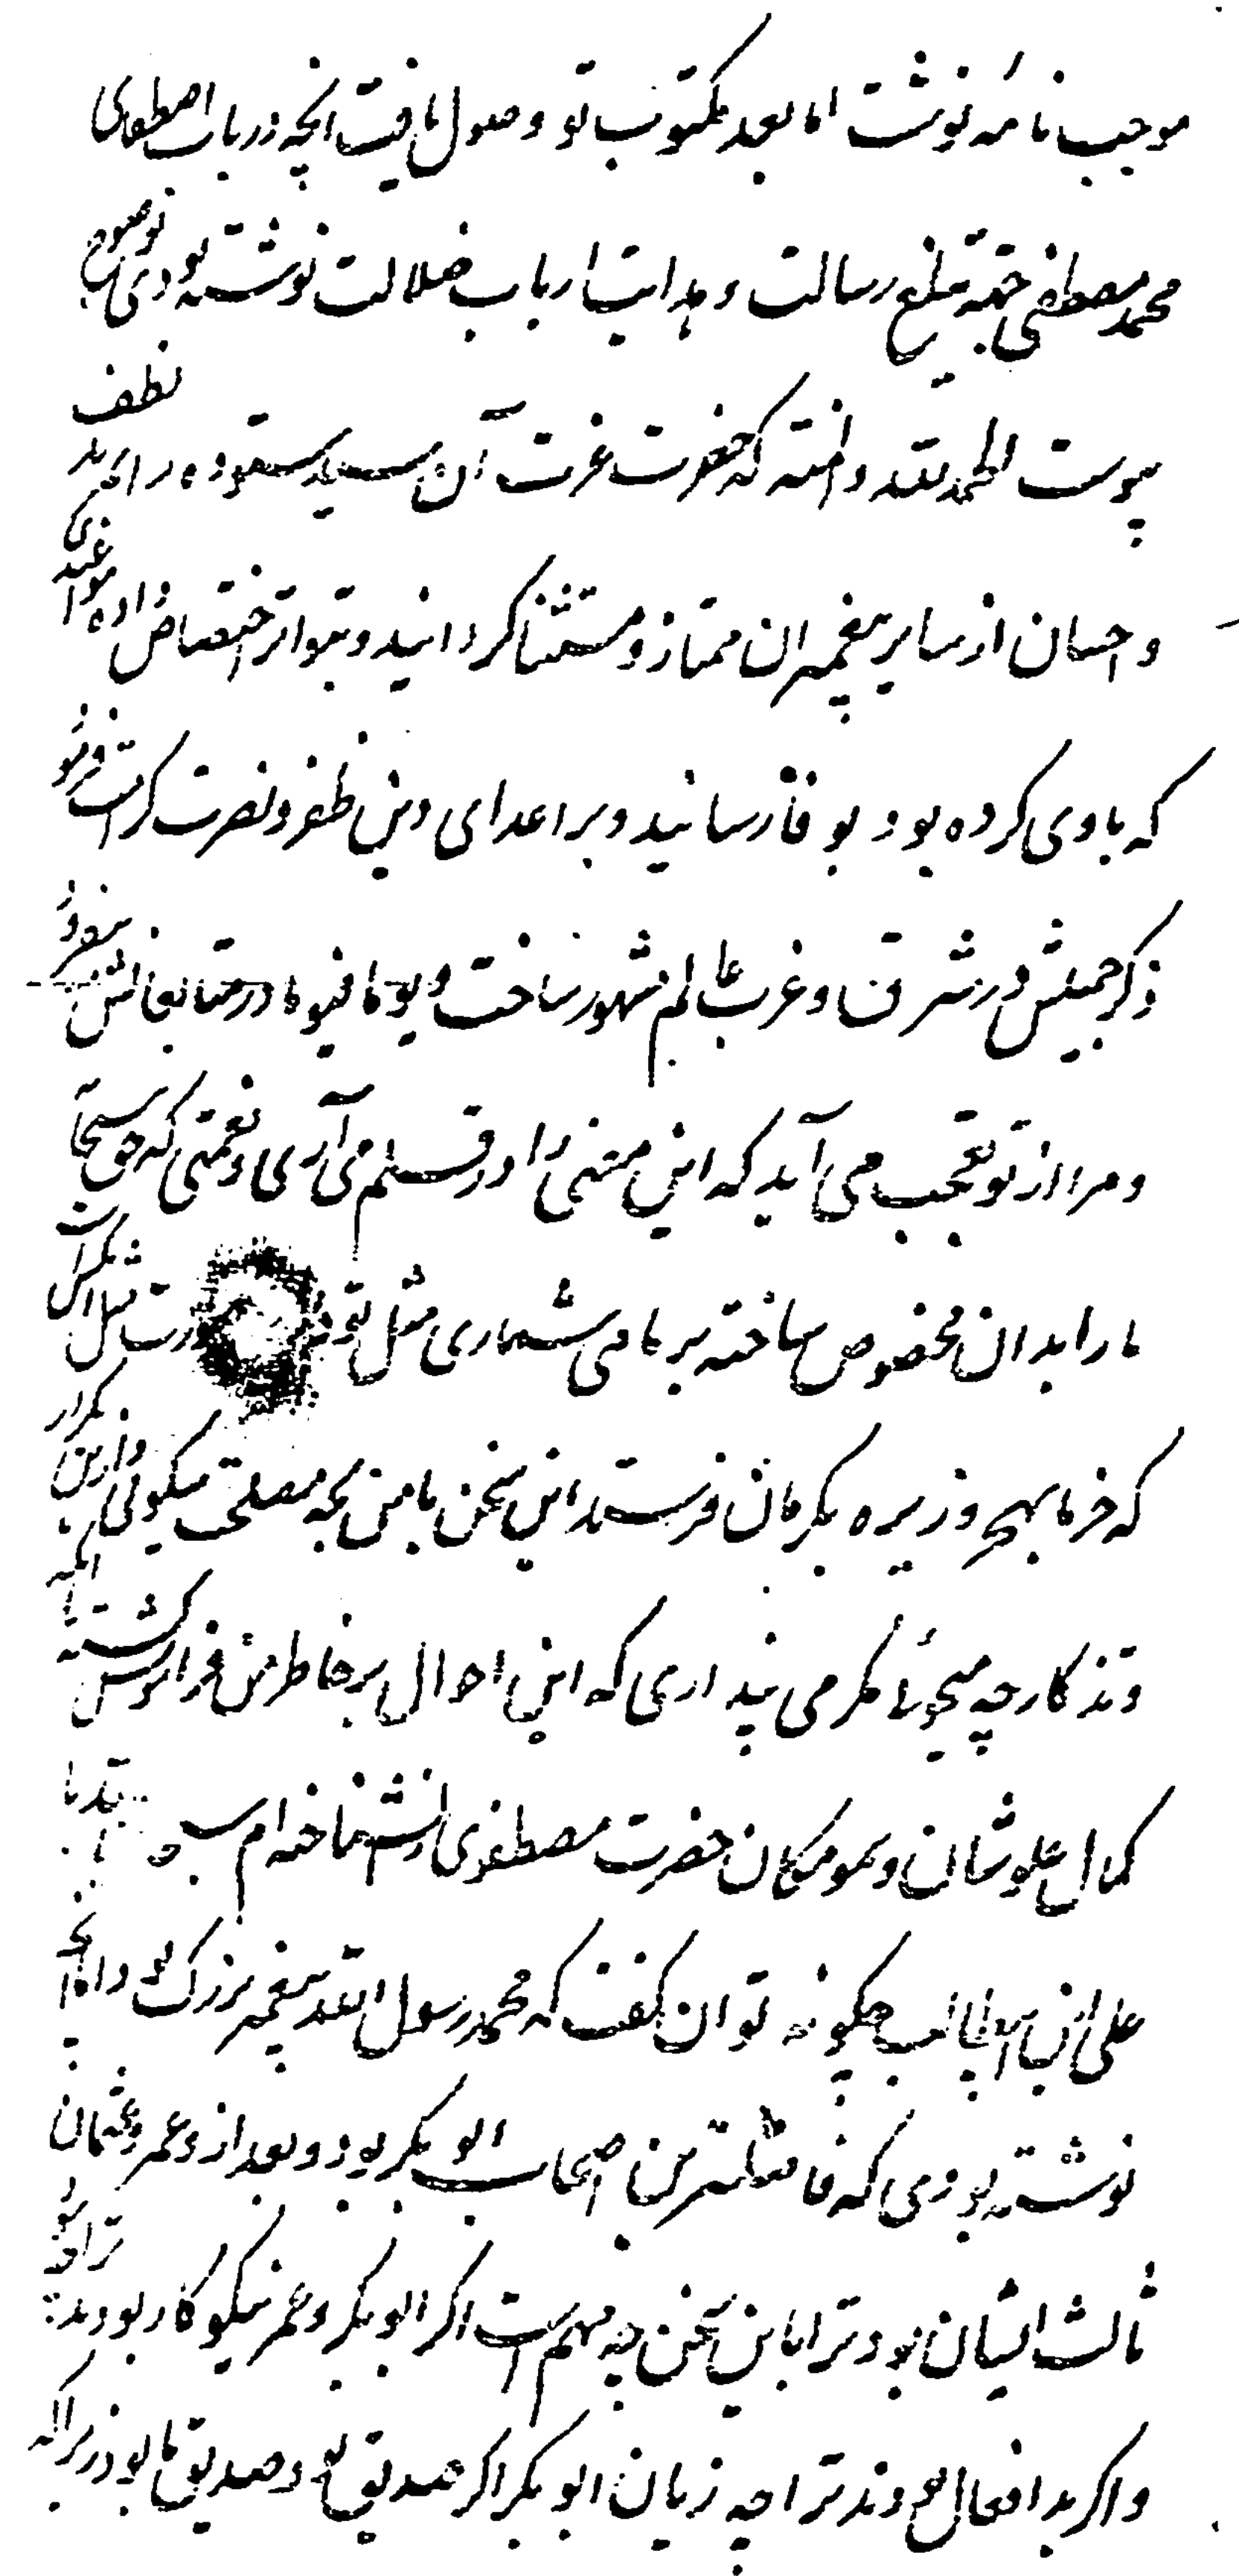 موجب نامه نوشت اما بعد مکتوب تو وصول یافت آنچه در باب اصطفای
محمد مصطفی جهته تبلیغ رسالت و هدایت ارباب ضلالت نوشته بودی بوضوح
پیوست الحمد لله و المنته که حضرت عزت آن سید ستوده را بمزید لطف
و احسان از سایر پیغمبران ممتاز و مستثنا کردانید و بتواتر اختصاص داده مواعیدی
که با وی کرده بود بوفا رسانید و بر اعدای دین ظفر و نصرت کرامت فرمود
ذکر جمیلش در شرق و غرب عالم مشهور ساخت و یوما فیوما در متابعانش بیفزود
و مرا از تو تعجب می آید که این معنی را در قلم می آری و نعمتی که حق سبحانه
ما را بدان مخصوص ساخته بر ما می شماری مثل تو مثل آنکس است
که خرما بهجر و زیره بکرمان فرستد این سخن با من بچه مصلحت میکوئی و ازین تکرار
و تذکار چه میجوئی مکر می پنداری که این احوال بر خاطر من فراموش کشته
کمال علو شان و سمو مکان حضرت مصطفوی را نشناخته ام
علی ابن ابیطالب چکونه توان کفت که محمد رسول الله پیغمبر بزرک بود و آنکه
نوشته بودی که فاضلترین اصحاب ابو بکر بود و بعد از و عمر و عثمان
ثالث ایشان بود ترا با این سخن چه مهم است اکر ابو بکر و عمر نیکو کار بودند ترا چه سود
و اکر بد افعال بودند ترا چه زیان ابو بکر اکر صدیق بود صدیق ما بود زیراکه